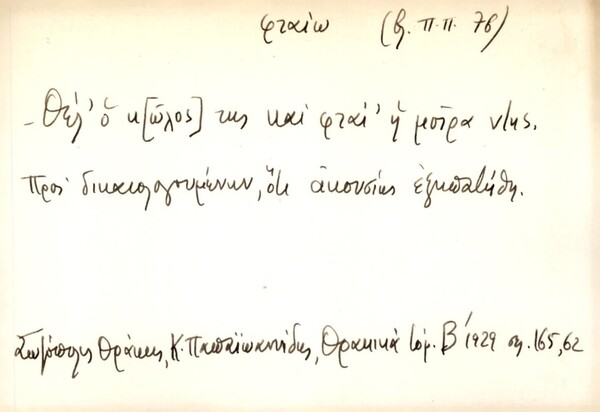 φταίω (βλ. π.π. 76)
- Θέλ' ὁ κ[ῶλος] της καί φταί' ἡ μοῖρα ντης.
Πρός δικαιολογουμένην, ὅτι ἀκουσίως ἐξηπατήθη.
Σωζόπολις Θράκης, Κ. Παπαϊωαννίδης, Θρακικά τόμ. Β' 1929 σελ. 165, 62